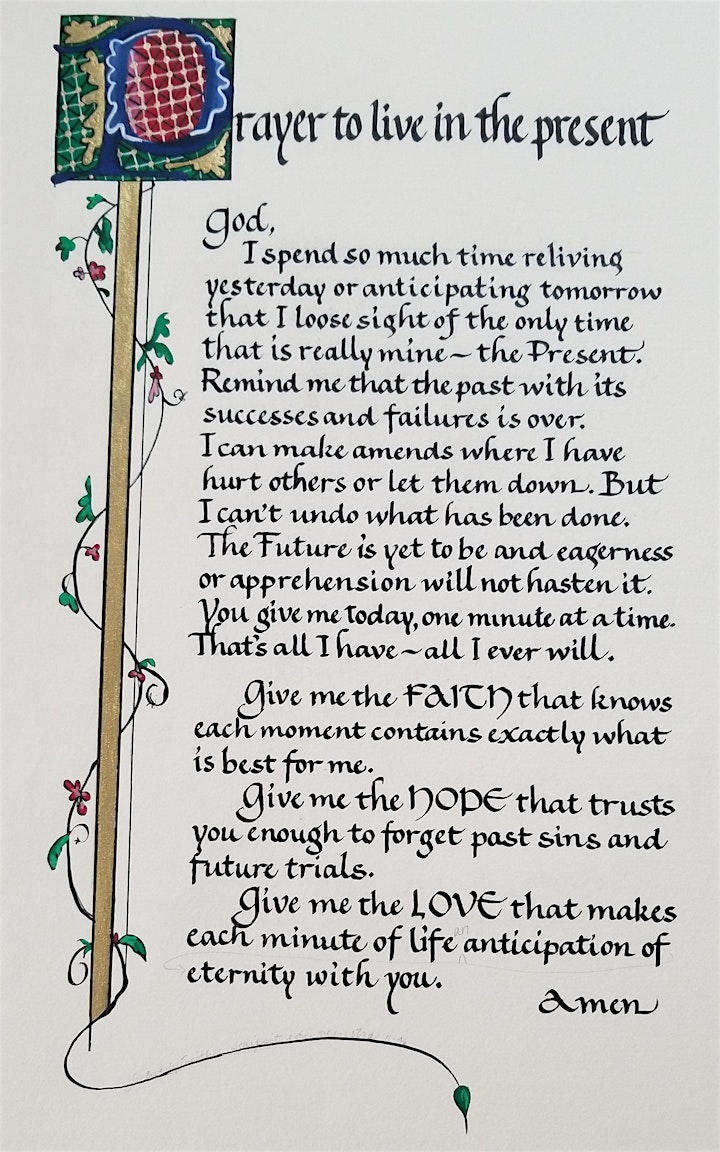 Prayer to live in the present
God,
I spend so much time reliving
yesterday or anticipating tomorrow
that I loose sight of the only time
that is really mine ~ the Present.
Remind me that the past with its
successes and failures is over.
I can make amends where I have
hurt others or let them down. But
I can't undo what has been done.
The Future is yet to be and eagerness
or apprehension will not hasten it.
You give me today, one minute at a time.
That's all I have ~ all I ever will.
Give me the FAITH that knows
each moment contains exactly what
is best for me.
Give me the HOPE that trusts
you enough to forget past sins and
future trials.
Give me the LOVE that makes
each minute of life an anticipation of
eternity with you.
Amen